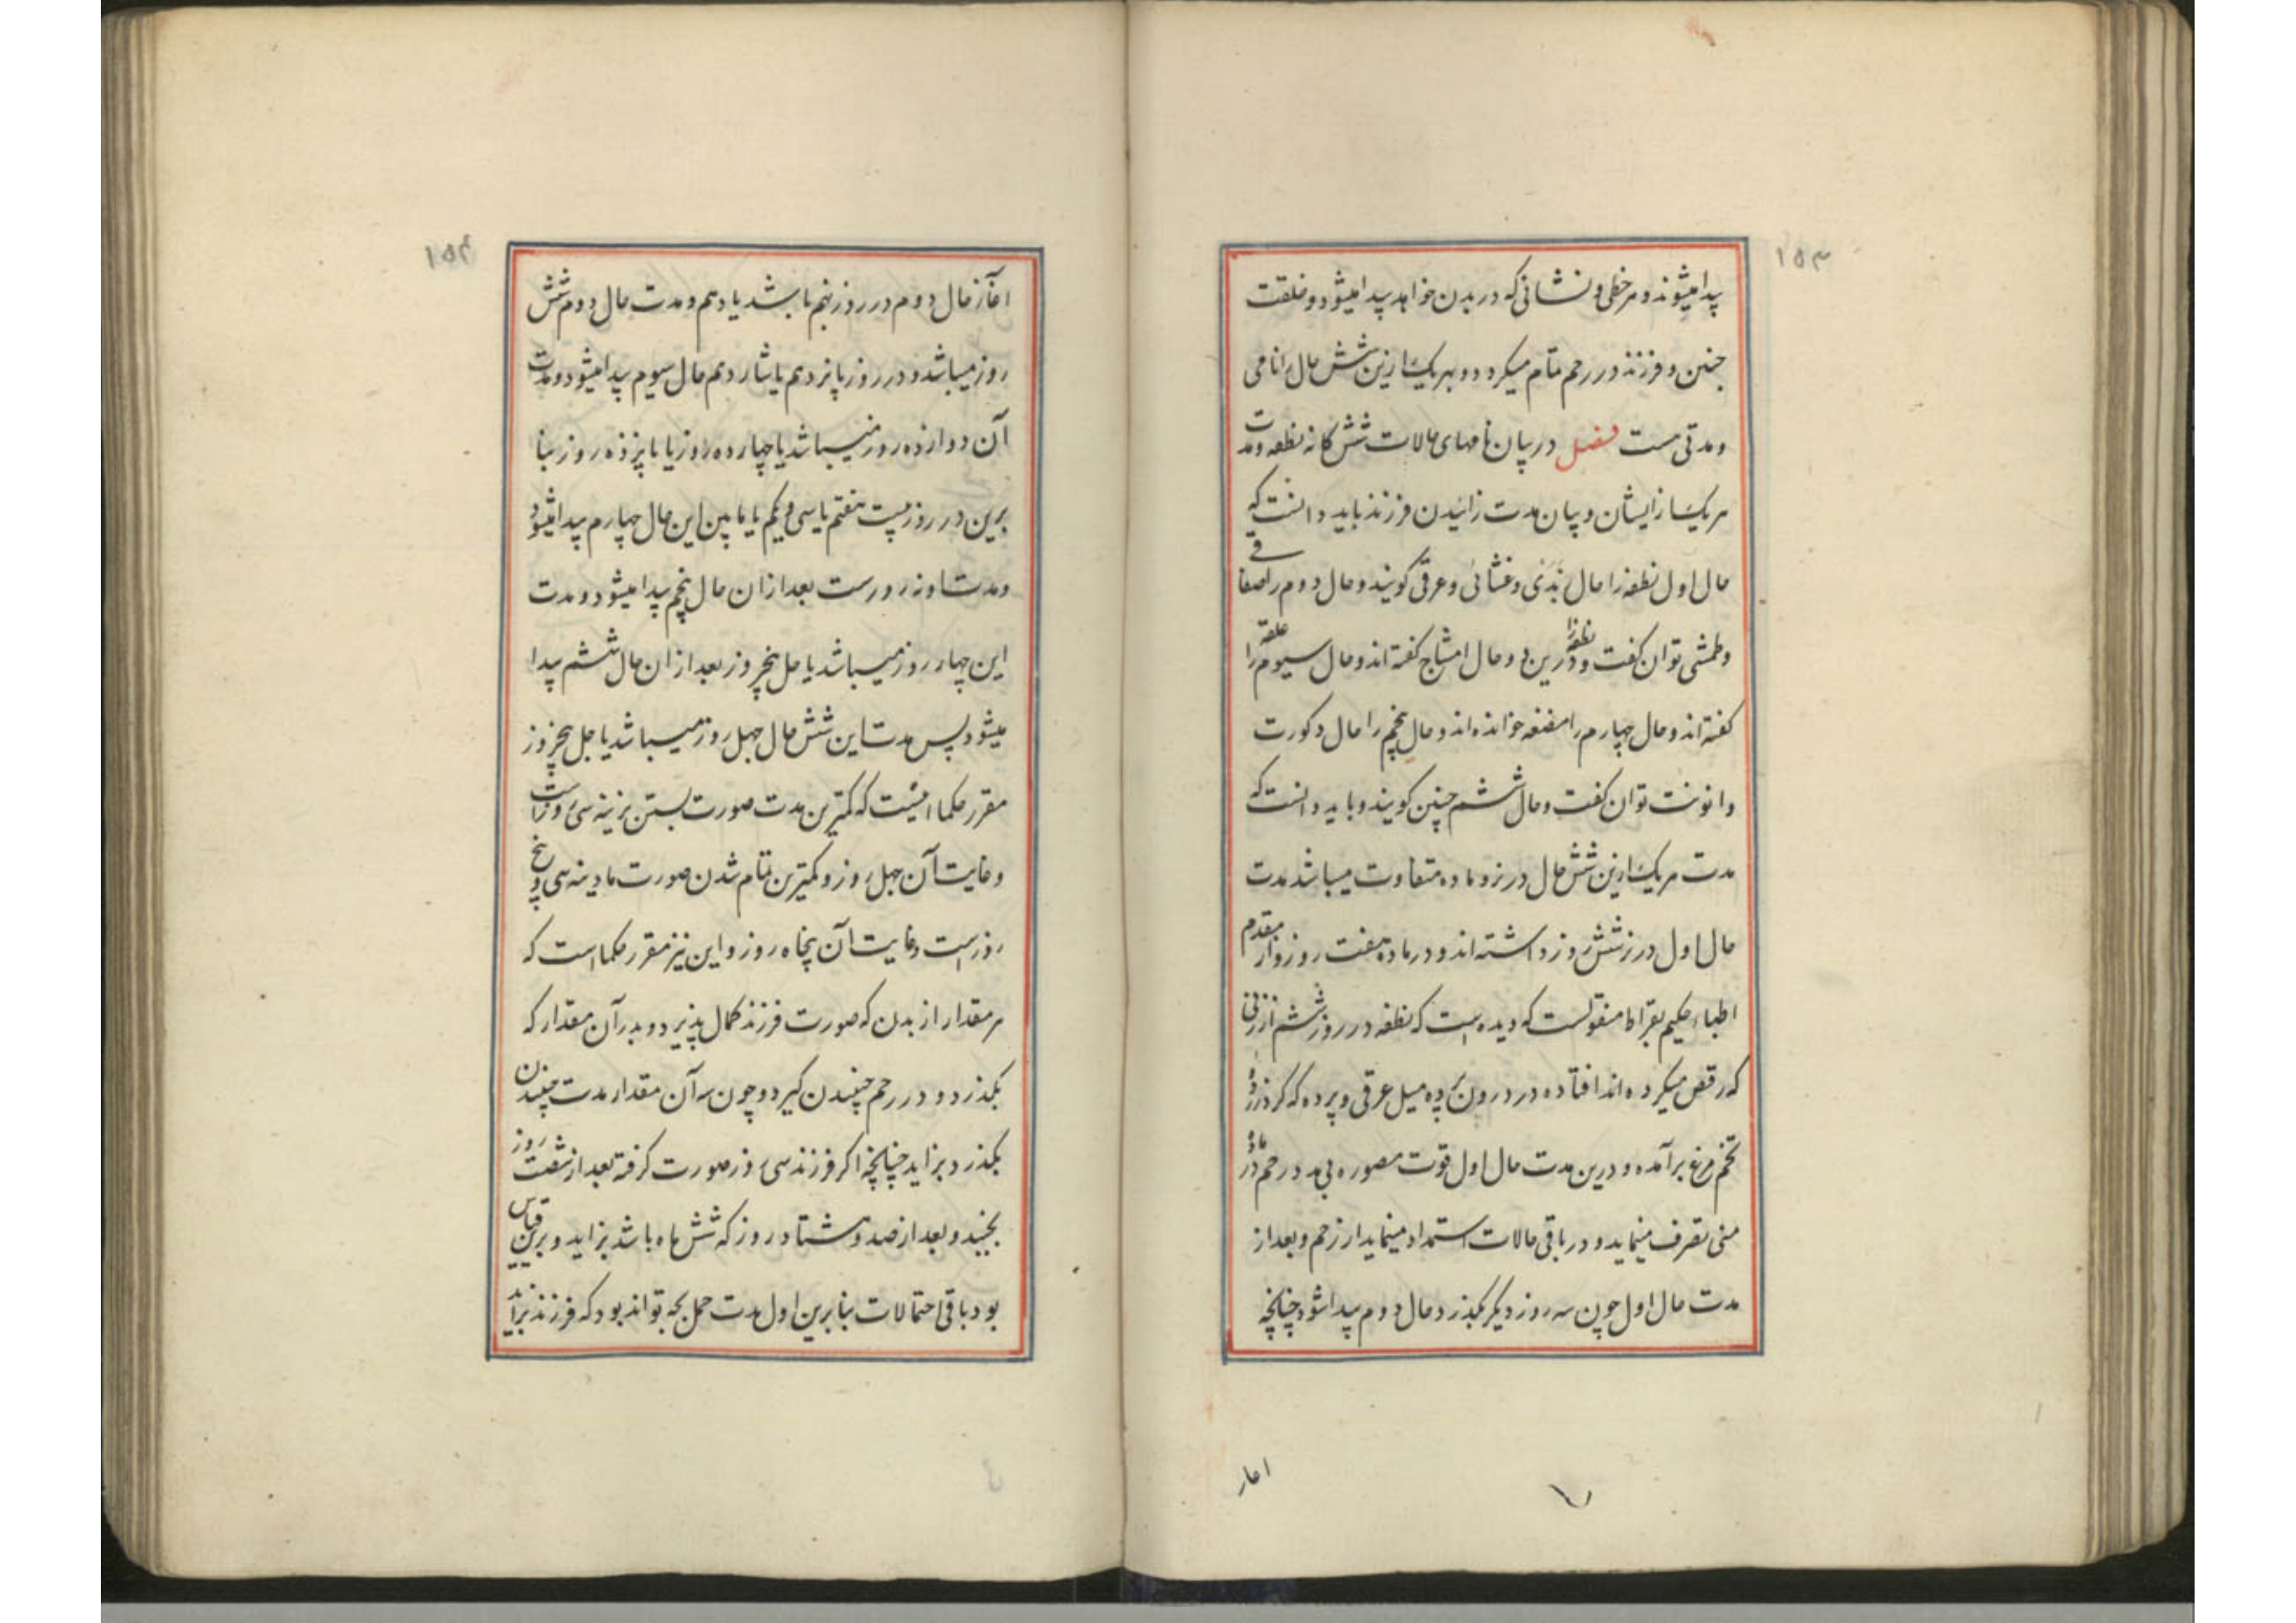 ۱۵۳
پیدا میشوند و هر خطی و نشانی که در بدن خواهد پیدا میشود و خلقت
جنین و فرزند در رحم تمام میکردد و بهر یک ازین شش حال را نامی
و مدتی هست فصل در بیان نامهای حالات شش کانه نطفه و مدت
هر یک از ایشان و بیان مدت زائیدن فرزند باید دانست که
حال اول نطفه را حال بذی و غشائی و عرقی کویند و حال دوم را صفاقی
و طمثی توان کفت و درین دو حال نطفه را امشاج کفته اند و حال سیوم را علقه
کفته اند و حال چهارم را مضغه خوانده اند و حال پنجم را حال ذکورت
و انوثت توان کفت و حال ششم جنین کویند و باید دانست که
مدت هر یک ازین شش حال در نر و ماده متفاوت میباشد مدت
حال اول در نر شش روز داشته اند و در ماده هفت روز و از مقدم
اطباء حکیم بقراط منقولست که دیده است که نطفه در روز ششم از زنی
که رقص میکرده اند افتاده در درون پرده میل عرقی و پرده که کرد زرده
تخم مرغ برآمده و درین مدت حال اول قوت مصوره بی مدد رحم در ماده
منی تصرف مینماید و در باقی حالات استمداد مینماید از رحم و بعد از
مدت حال اول چون سه روز دیکر بکذرد حال دوم پیدا شود چنانچه
اغاز
۱۵۴
اغاز حال دوم در روز نهم باشد یا دهم و مدت حال دوم شش
روز میباشد و در روز پانزدهم یا شانزدهم حال سیوم پیدا میشود و مدت
آن دوازده روز میباشد یا چهارده روز یا پانزده روز بنا
برین در روز بیست هفتم یا سی و یکم یا مابین این حال چهارم پیدا میشود
و مدت او نه روزست بعد از ان حال پنجم پیدا میشود و مدت
این چهار روز میباشد یا پنجروز بعد از ان حال ششم پیدا
میشود پس مدت این شش حال چهل روز میباشد یا چهل پنجروز
مقرر حکما اینست که کمترین مدت صورت بستن نرینه سی روز است
و غایت آن چهل روز و کمترین تمام شدن صورت مادینه سی و پنج
روز است و غایت آن پنجاه روز و این نیز مقرر حکما است که
هر مقدار از بدن که صورت فرزند کمال پذیرد و بدر آن مقدار که
بکذرد و در رحم جنبیدن کیرد و چون سه آن مقدار مدت جنبیدن
بکذرد بزاید چنانچه اکر فرزند سی روز صورت کرفته بعد از شصت روز
بجنبد و بعد از صد و هشتاد روز که شش ماه باشد بزاید و برین قیاس
بود باقی احتمالات بنابرین اول مدت حمل بچه تواند بود که فرزند بزاید